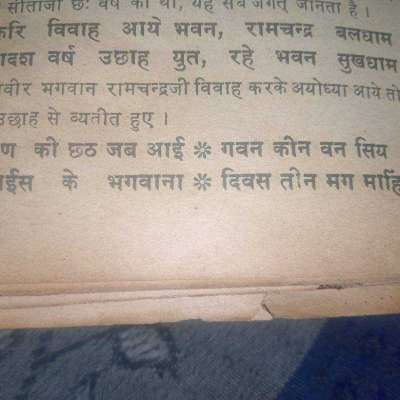 सीताजी छः वर्ष की थी, यह सब जगत् जानता है।
करि विवाह आये भवन, रामचन्द्र बलधाम
वर्ष उछाह युत, रहे भवन सुखधाम
भगवान रामचन्द्रजी विवाह करके अयोध्या आये तो
से व्यतीत हुए।
की छठ जब आई ❊ गवन कीन वन सिय
के भगवाना ❊ दिवस तीन मग माहिं